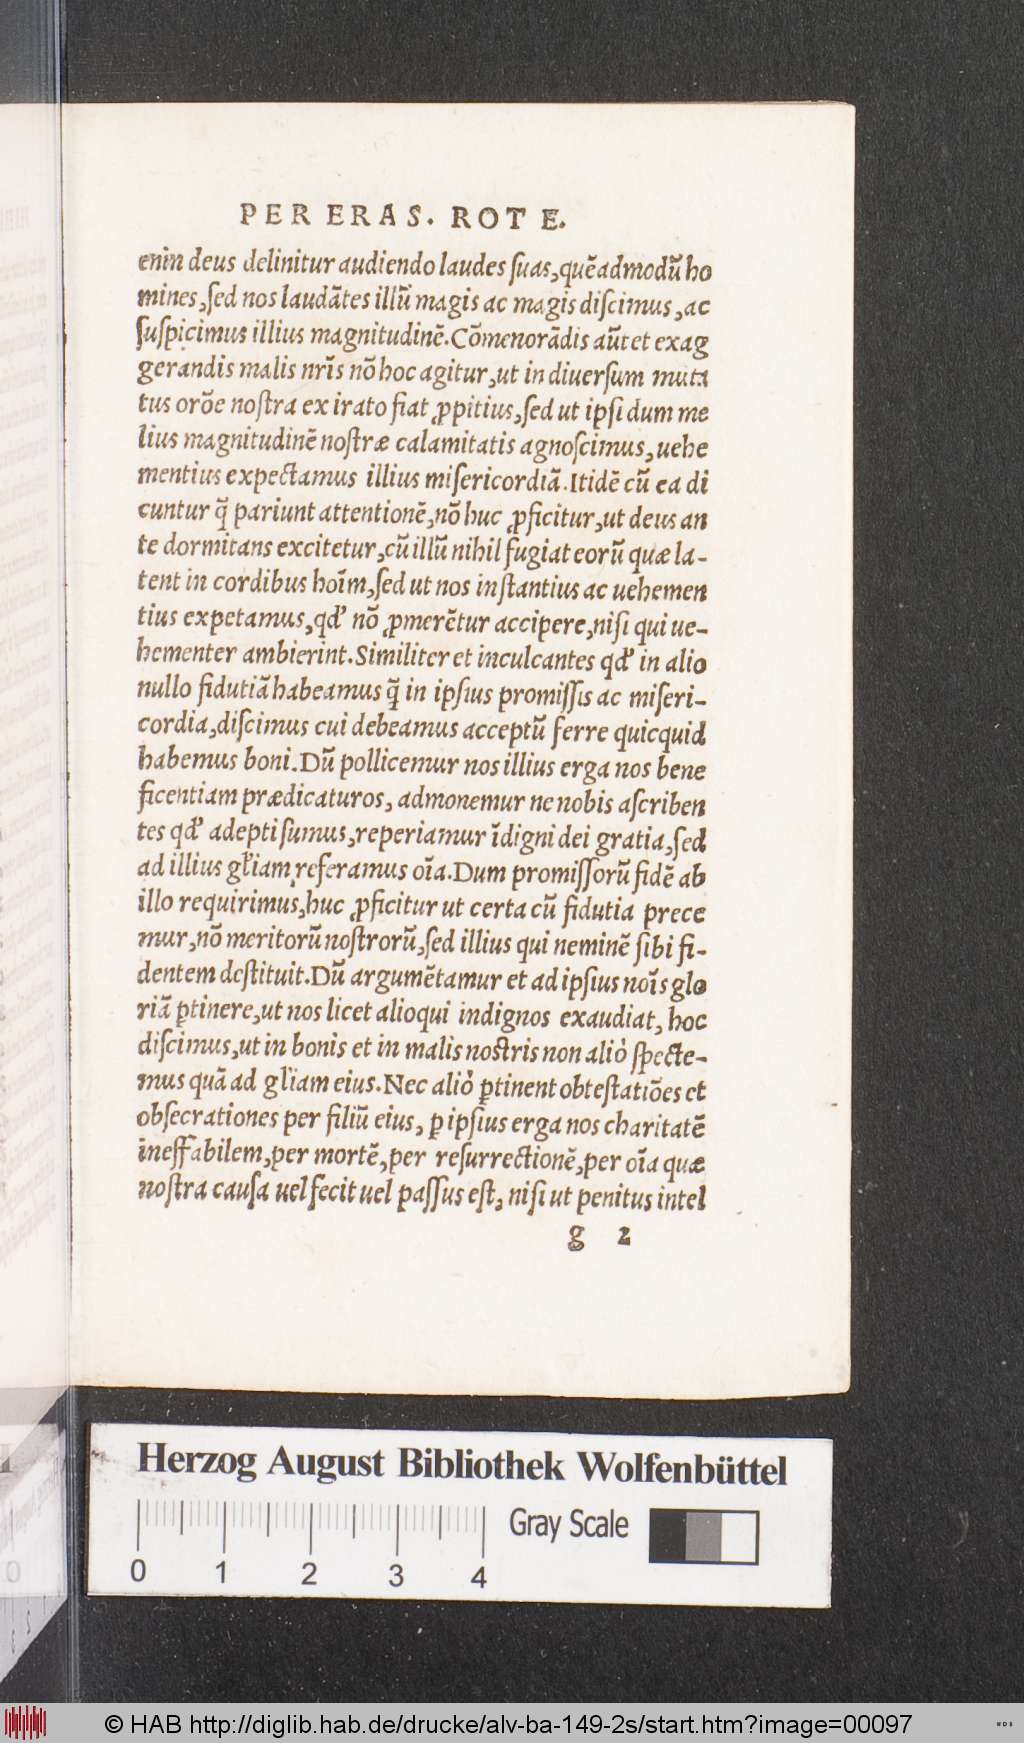 PER ERAS. ROT E.
enim deus delinitur audiendo laudes ſuas,quẽadmodũ ho
mines,ſed nos laudãtes illũ magis ac magis diſcimus,ac
ſuſpicimus illius magnitudinẽ.Cõmenorãdis aũt et exag
gerandis malis nr̃is nõ hoc agitur,ut in diuerſum muta
tus orõe noſtra ex irato fiat ꝓpitius,ſed ut ipſi dum me
lius magnitudinẽ noſtræ calamitatis agnoſcimus,uehe
mentius expectamus illius miſericordiã.Itidẽ cũ ea di
cuntur q̃ pariunt attentionẽ,nõ huc ꝓficitur,ut deus an
te dormitans excitetur,cũ illũ nihil fugiat eorũ quæ la-
tent in cordibus hoĩm,ſed ut nos inſtantius ac uehemen
tius expetamus,qđ nõ ꝓmerẽtur accipere,niſi qui ue-
hementer ambierint.Similiter et inculcantes qđ in alio
nullo fidutiã habeamus q̃ in ipſius promiſſis ac miſeri-
cordia,diſcimus cui debeamus acceptũ ferre quicquid
habemus boni.Dũ pollicemur nos illius erga nos bene
ficentiam prædicaturos, admonemur ne nobis aſcriben
tes qđ adepti ſumus,reperiamur ĩdigni dei gratia,ſed
ad illius gl̃iam referamus oĩa.Dum promiſſorũ fidẽ ab
illo requirimus,huc ꝓficitur ut certa cũ fidutia prece
mur,nõ meritorũ noſtrorũ,ſed illius qui neminẽ ſibi fi-
dentem deſtituit.Dũ argumẽtamur et ad ipſius noĩs glo
riã ꝑtinere,ut nos licet alioqui indignos exaudiat, hoc
diſcimus,ut in bonis et in malis noſtris non aliò ſpecte-
mus quã ad gl̃iam eius.Nec aliò ꝑtinent obteſtatiões et
obſecrationes per filiũ eius, ꝑ ipſius erga nos charitatẽ
ineffabilem,per mortẽ,per reſurrectionẽ,per oĩa quæ
noſtra cauſa uel fecit uel paſſus eſt, niſi ut penitus intel
g 2
Herzog August Bibliothek Wolfenbüttel
Gray Scale
0 1 2 3 4
© HAB http://diglib.hab.de/drucke/alv-ba-149-2s/start.htm?image=00097